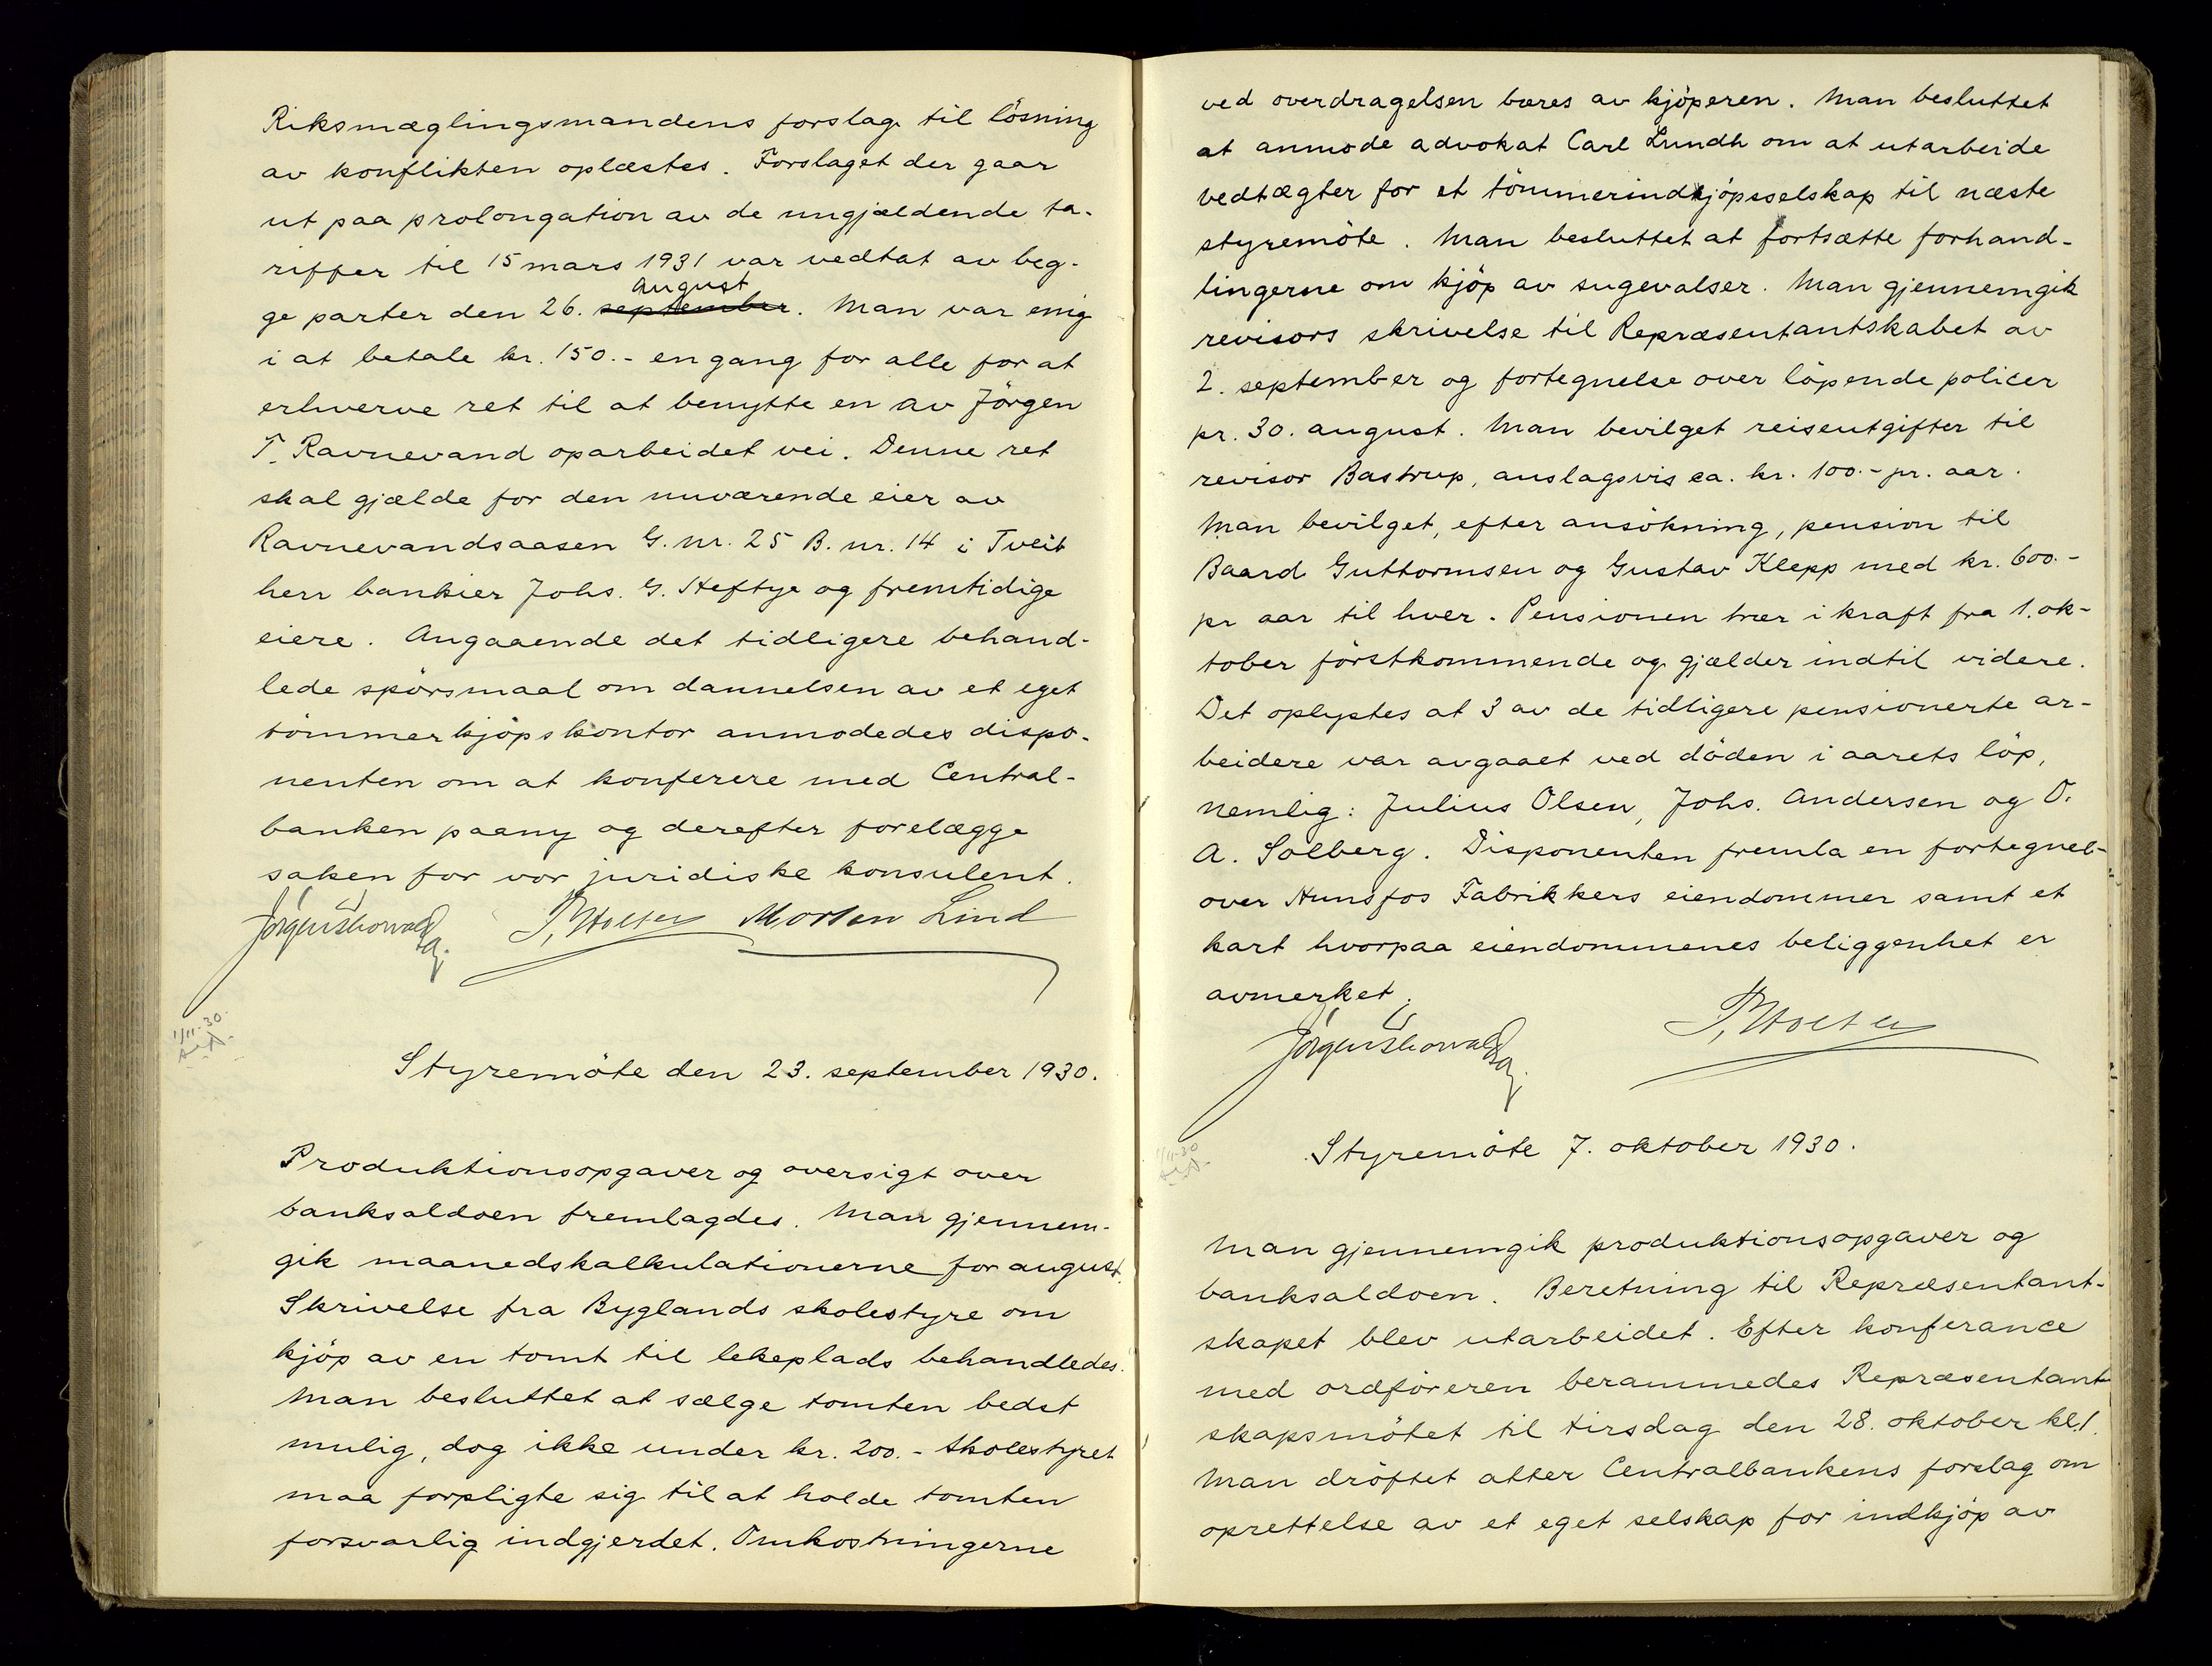 Riksmæglingsmandens forslag til lösning
av konflikten oplæstes. Forslaget der gaar
ut paa prolongation av de nugjældende ta-
riffer til 15 mars 1931 var vedtat av beg-
august
ge parter den 26. september. Man var enig
i at betale kr. 150.- engang for alle for at
erhverve ret til at benytte en av Jörgen
T. Ravnevand oparbeidet vei. Denne ret
skal gjælde for den nuværende eier av
Ravnevandsaasen G. nr. 25 B. nr. 14 i Tveit
herr bankier Johs. G. Heftye og fremtidige
eiere. Angaaende det tidligere behand-
lede spörsmaal om dannelsen av et eget
tömmerkjöpskontor anmodedes dispo-
nenten om at konferere med Central-
banken paany og derefter forelægge
saken for vor juridiske konsulent.
Morten Lind
1/11-30.
Styremöte den 23. september 1930.
Produktionsopgaver og oversigt over
banksaldoen fremlagdes. Man gjennem-
gik maanedskalkulationerne for august.
Skrivelse fra Byglands skolestyre om
kjöp av en tomt til lekeplads behandledes.
Man besluttet at sælge tomten bedst
mulig, dog ikke under kr. 200.- Skolestyret
maa forpligte sig til at holde tomten
forsvarlig indgjerdet. Omkostningerne
ved overdragelsen bæres av kjöperen. Man besluttet
at anmode advokat Carl Lundh om at utarbeide
vedtægter for et tömmerindkjöpsselskap til næste
styremöte. Man besluttet at fortsætte forhand-
lingerne om kjöp av sugevalser. Man gjennemgik
revisors skrivelse til Repræsentantskabet av
2. september og fortegnelse over löpende policer
pr. 30. august. Man bevilget reiseutgifter til
revisor Bastrup, anslagsvis ca. kr. 100.- pr. aar.
Man bevilget, efter ansökning, pension til
Baard Guttormsen og Gustav Klepp med kr. 600.-
pr aar til hver. Pensionen trær i kraft fra 1. ok-
tober förstkommende og gjælder indtil videre.
Det oplystes at 3 av de tidligere pensionerte ar-
beidere var avgaaet ved döden i aarets löp,
nemlig: Julius Olsen, Johs. Andersen og O.
A. Solberg. Disponenten fremla en fortegnel-
over Hunsfos Fabrikkers eiendommer samt et
kart hvorpaa eiendommenes beliggenhet er
avmerket.
1/11-30
Styremöte 7. oktober 1930.
Man gjennemgik produktionsopgaver og
banksaldoen. Beretning til Repræsentant-
skapet blev utarbeidet. Efter konferance
med ordföreren berammedes Repræsentant-
skapsmötet til tirsdag den 28. oktober kl. 1.
Man dröftet atter Centralbankens forslag om
oprettelse av et eget selskap for indkjöp av